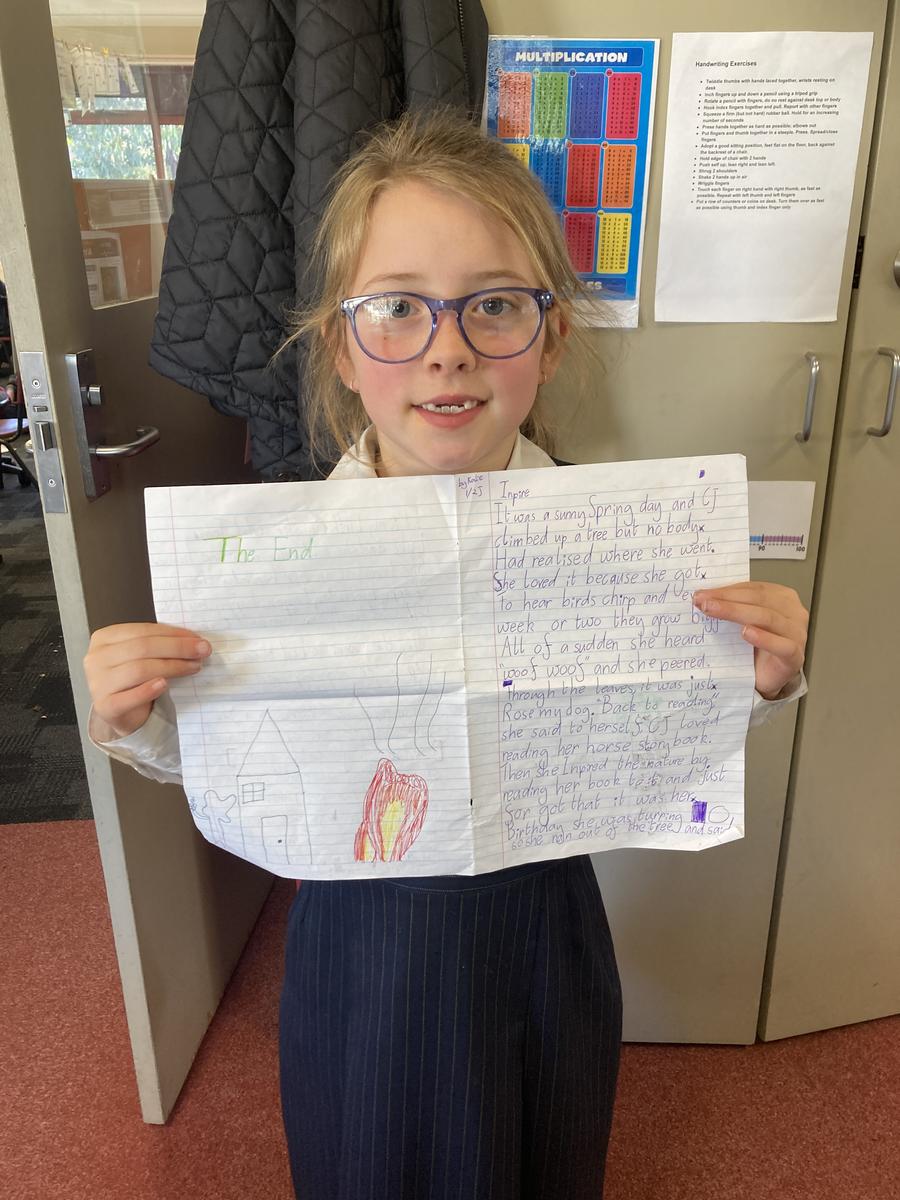 MULTIPLICATION
Handwriting Exercises
Twiddle thumbs with hands laced together, wrists resting on
desk
Inch fingers up and down a pencil using a tripod grip
Rotate a pencil with fingers, do no rest against desk top or body
Hook index fingers together and pull. Report with other fingers
Squeeze a firm (but not hard) rubber ball. Hold for an increasing
number of seconds
Press hands together as hard as possible; elbows out
Put fingers and thumb together in a steeple. Press. Spread/close
fingers
Adopt a good sitting position, feet flat on the floor, back against
the backrest of a chair.
Hold edge of chair with 2 hands
Push self up, lean right and lean left.
Shrug 2 shoulders
Shake 2 hands up in air
Wriggle fingers
Touch each finger on right hand with right thumb, as fast as
possible. Repeat with left thumb and left fingers
Put a row of counters or coins on desk. Turn them over as fast
as possible using thumb and index finger only
90 100
The End
1/2J
Inpire
It was a sunny Spring day and CJ
climbed up a tree but no body
Had realised where she went.
She loved it because she got
to hear birds chirp and
week or two they grow
All of a sudden she heard
"woof woof" and she peered.
Through the leaves, it was just
Rose my dog. "Back to reading"
she said to herself. CJ loved
reading her horse story book.
Then she Inpired the nature by
reading her book to it and just
for got that it was her
Birthday she was turring
so she ran out of the tree and